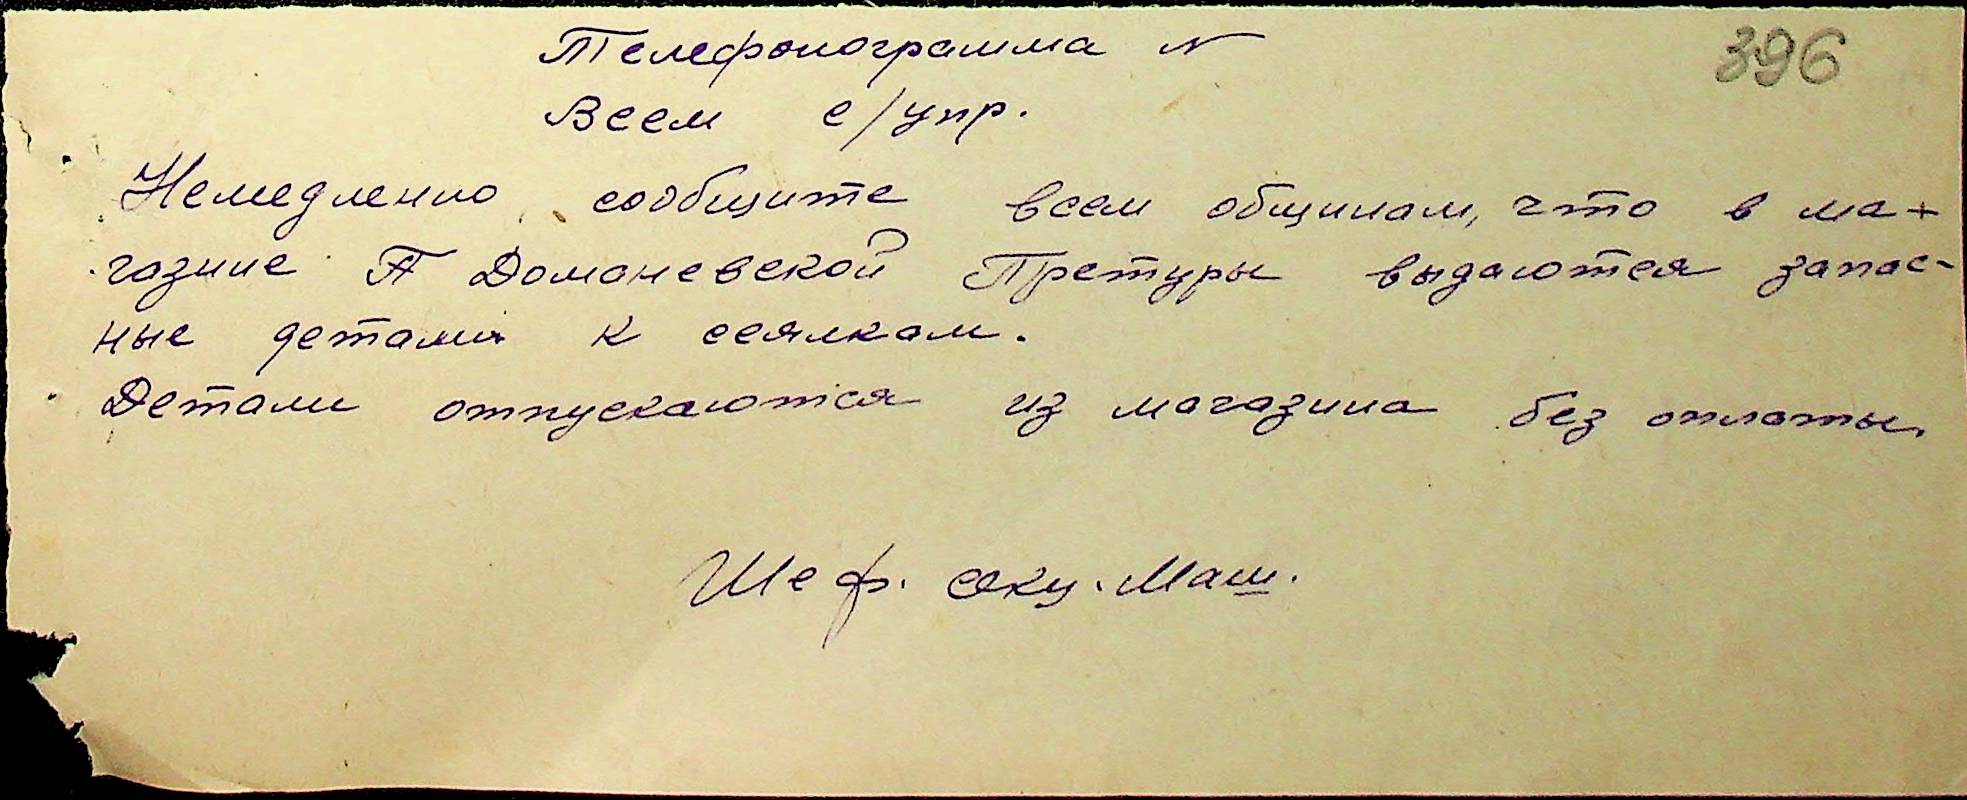 Телефонограмма N
396
Всем с/упр.
Немедленно сообщите всем общинам, что в ма-
газине Доманевской Претуры выдаются запас-
ные детали к сеялкам.
Детали отпускаются из магазина без оплаты.
Шеф. секц. Маш.